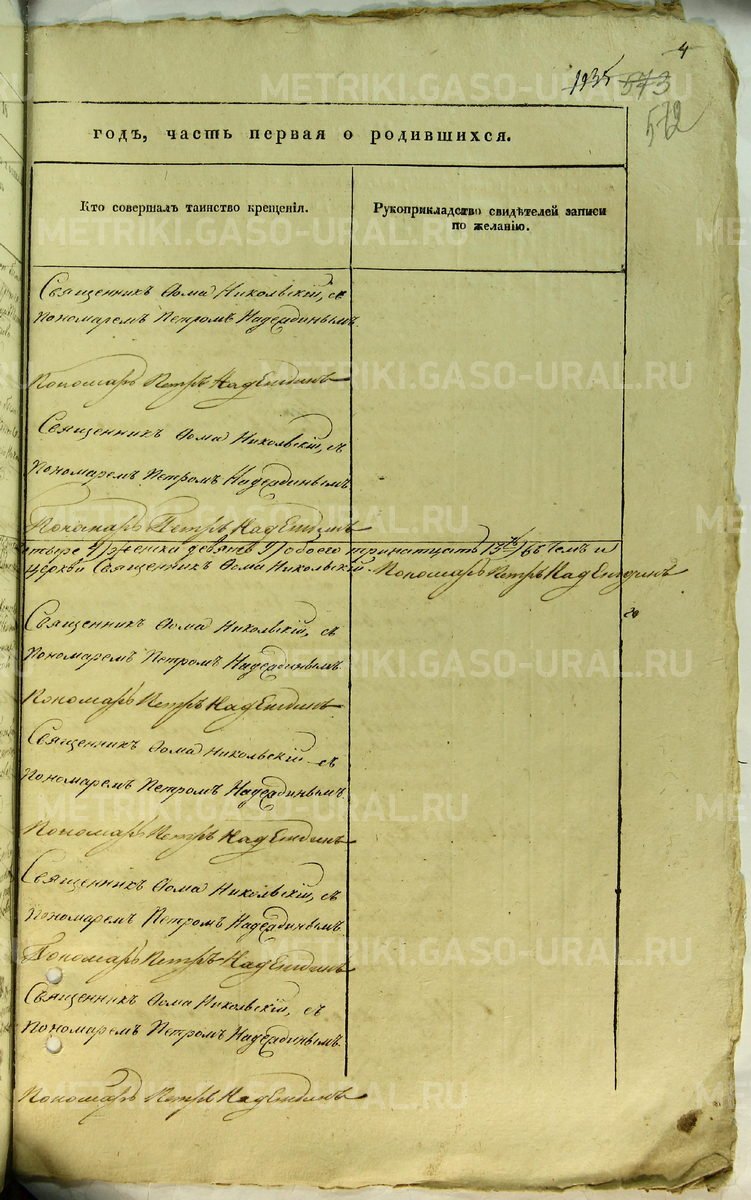 4
1935 573
572
годъ, часть первая о родившихся.
Кто совершалъ таинство крещенія.
Рукоприкладство свидѣтелей записи
по желанію.
Священникъ Ѳома Никольскій, съ
Пономаремъ Петромъ Надеждинымъ.
Пономарь Петръ Надеждинъ
Священникъ Ѳома Никольскій, съ
Пономаремъ Петромъ Надеждинымъ
Пономарь Петръ Надеждинъ
женска девять 9 обоего тринатцать 13ть въ чемъ и
церкви Священникъ Ѳома Никольскій. Пономарь Петръ Надеждинъ
Священникъ Ѳома Никольскій, съ
Пономаремъ Петромъ Надеждинымъ
Пономарь Петръ Надеждинъ
Священникъ Ѳома Никольскій съ
Пономаремъ Петромъ Надеждинымъ
Пономарь Петръ Надеждинъ
Священникъ Ѳома Никольскій, съ
Пономаремъ Петромъ Надеждинымъ
Пономарь Петръ Надеждинъ
Священникъ Ѳома Никольскій, съ
Пономаремъ Петромъ Надеждинымъ
Пономарь Петръ Надеждинъ
METRIKI.GASO-URAL.RU